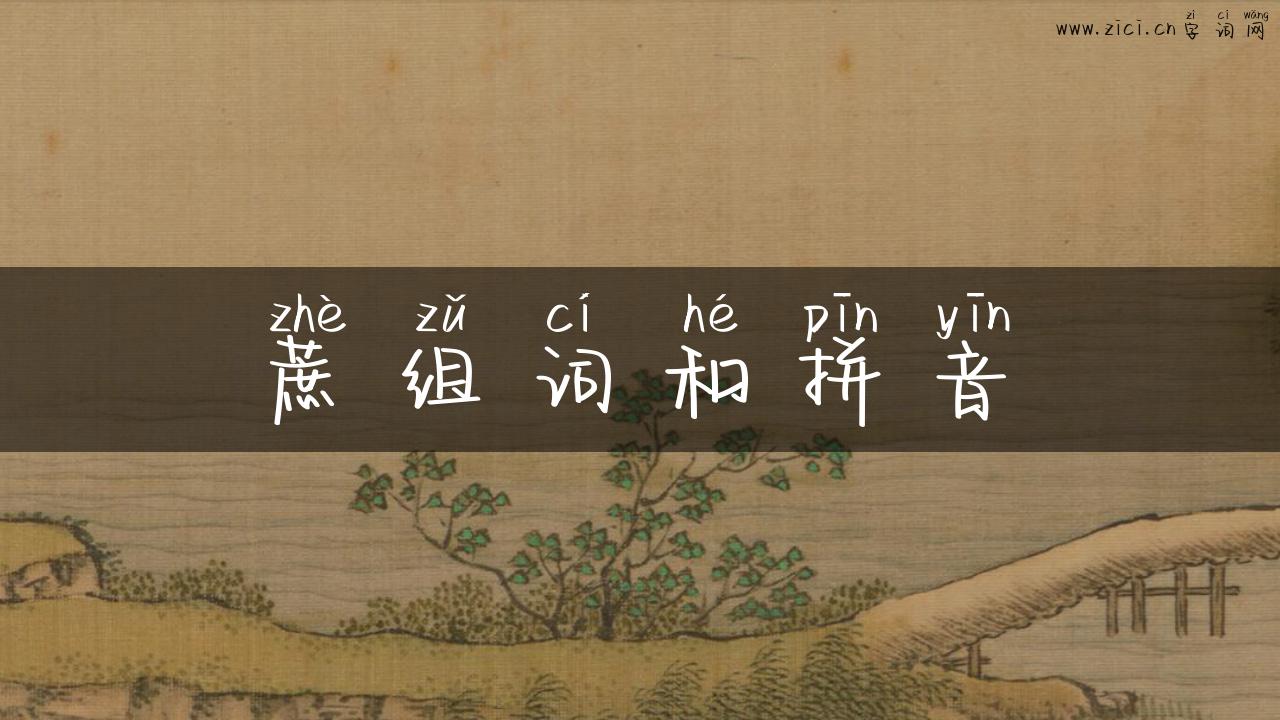 zì cí wǎng
www.zici.cn 字词网
zhè zǔ cí hé pīn yīn
蔗组词和拼音